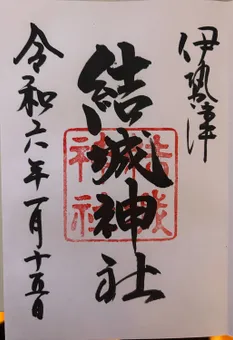 伊勢津
結城神社
結城
神社
令和六年一月十五日